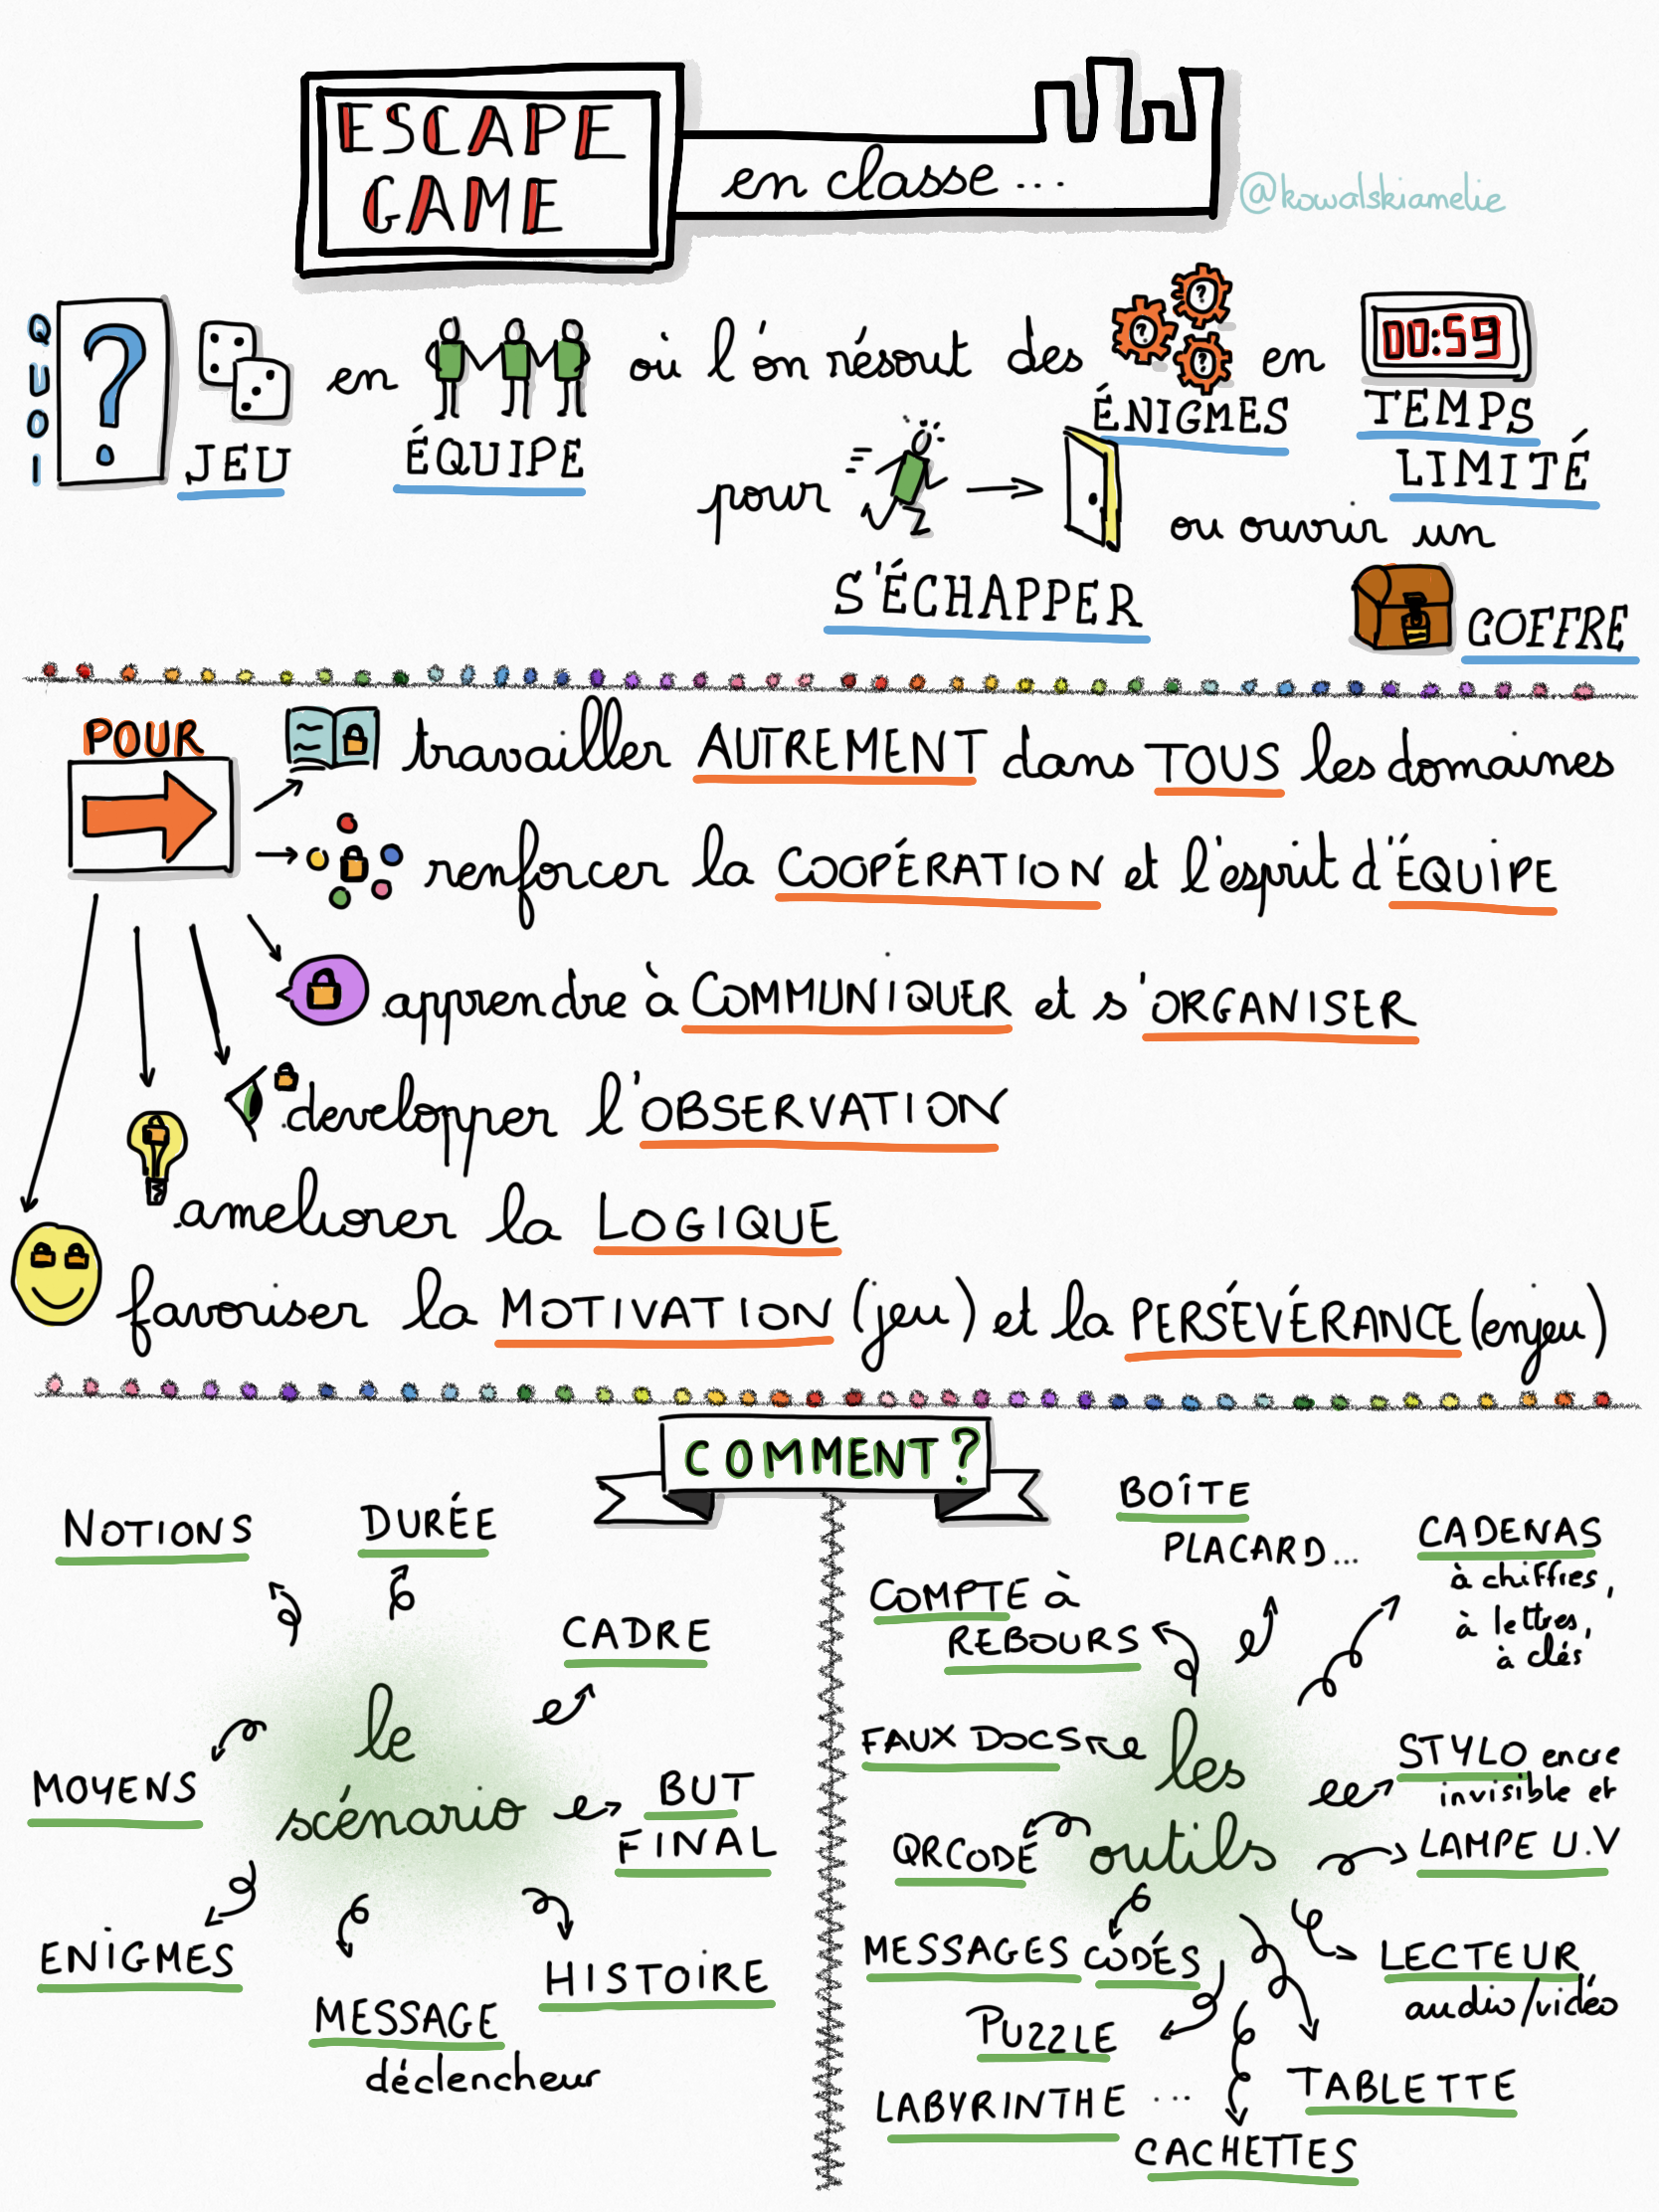 ESCAPE
GAME
en classe ...
@kowalskiamelie
QUOI
?
JEU
en
ÉQUIPE
où l'on résout des
? ? ?
ÉNIGMES
en
00:59
TEMPS
LIMITÉ
pour
S'ÉCHAPPER
ou ouvrir un
COFFRE
POUR
travailler AUTREMENT dans TOUS les domaines
renforcer la COOPÉRATION et l'esprit d'ÉQUIPE
apprendre à COMMUNIQUER et s'ORGANISER
developper l'OBSERVATION
ameliorer la LOGIQUE
favoriser la MOTIVATION (jeu) et la PERSÉVÉRANCE (enjeu)
COMMENT?
le
scénario
NOTIONS
DURÉE
CADRE
BUT
FINAL
HISTOIRE
MESSAGE
déclencheur
ENIGMES
MOYENS
les
outils
BOÎTE
PLACARD...
CADENAS
à chiffres,
à lettres,
à clés
STYLO encre
invisible et
LAMPE U.V
LECTEUR
audio/vidéo
TABLETTE
CACHETTES
COMPTE à
REBOURS
FAUX DOCS
QRCODE
MESSAGES CODÉS
PUZZLE
LABYRINTHE ...